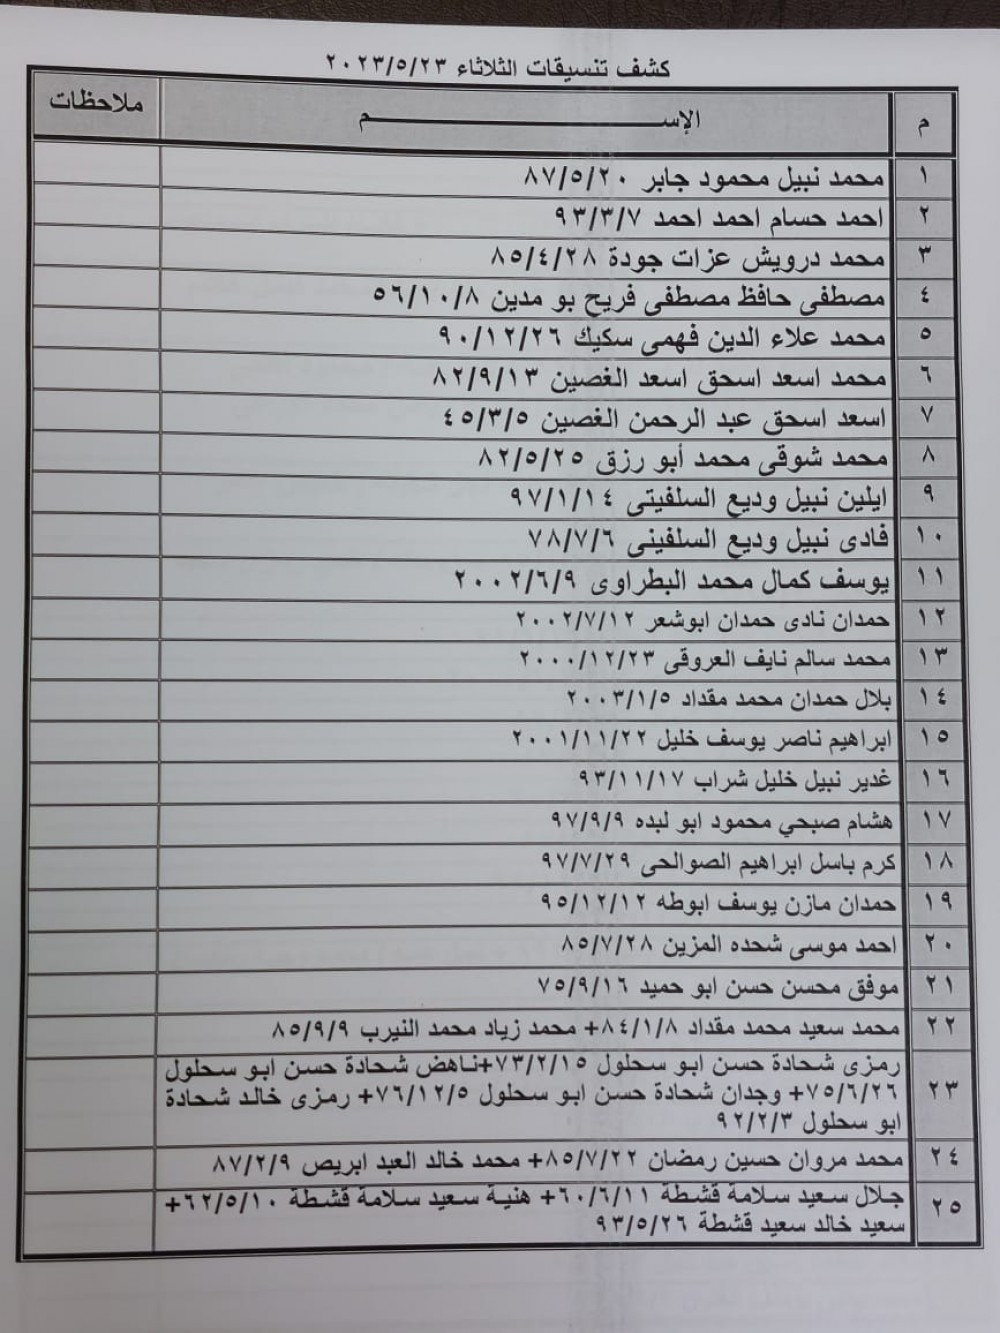 كشف تنسيقات الثلاثاء ٢٠٢٣/٥/٢٣
م الإســــــــم ملاحظات
١ محمد نبيل محمود جابر ٨٧/٥/٢٠
٢ احمد حسام احمد احمد ٩٣/٣/٧
٣ محمد درويش عزات جودة ٨٥/٤/٢٨
٤ مصطفى حافظ مصطفى فريح بو مدين ٥٦/١٠/٨
٥ محمد علاء الدين فهمى سكيك ٩٠/١٢/٢٦
٦ محمد اسعد اسحق اسعد الغصين ٨٢/٩/١٣
٧ اسعد اسحق عبد الرحمن الغصين ٤٥/٣/٥
٨ محمد شوقى محمد أبو رزق ٨٢/٥/٢٥
٩ ايلين نبيل وديع السلفيتى ٩٧/١/١٤
١٠ فادى نبيل وديع السلفينى ٧٨/٧/٦
١١ يوسف كمال محمد البطراوى ٢٠٠٢/٦/٩
١٢ حمدان نادى حمدان ابوشعر ٢٠٠٢/٧/١٢
١٣ محمد سالم نايف العروقى ٢٠٠٠/١٢/٢٣
١٤ بلال حمدان محمد مقداد ٢٠٠٣/١/٥
١٥ ابراهيم ناصر يوسف خليل ٢٠٠١/١١/٢٢
١٦ غدير نبيل خليل شراب ٩٣/١١/١٧
١٧ هشام صبحي محمود ابو لبده ٩٧/٩/٩
١٨ كرم باسل ابراهيم الصوالحى ٩٧/٧/٢٩
١٩ حمدان مازن يوسف ابوطه ٩٥/١٢/١٢
٢٠ احمد موسى شحده المزين ٨٥/٧/٢٨
٢١ موفق محسن حسن ابو حميد ٧٥/٩/١٦
٢٢ محمد سعيد محمد مقداد ٨٤/١/٨+ محمد زياد محمد النيرب ٨٥/٩/٩
٢٣ رمزى شحادة حسن ابو سحلول ٧٣/٢/١٥+ناهض شحادة حسن ابو سحلول
٧٥/٦/٢٦+ وجدان شحادة حسن ابو سحلول ٧٦/١٢/٥+ رمزى خالد شحادة
ابو سحلول ٩٢/٢/٣
٢٤ محمد مروان حسين رمضان ٨٥/٧/٢٢+ محمد خالد العبد ابريص ٨٧/٢/٩
٢٥ جلال سعيد سلامة قشطة ٦٠/٦/١١+ هنية سعيد سلامة قشطة ٦٢/٥/١٠+
سعيد خالد سعيد قشطة ٩٣/٥/٢٦